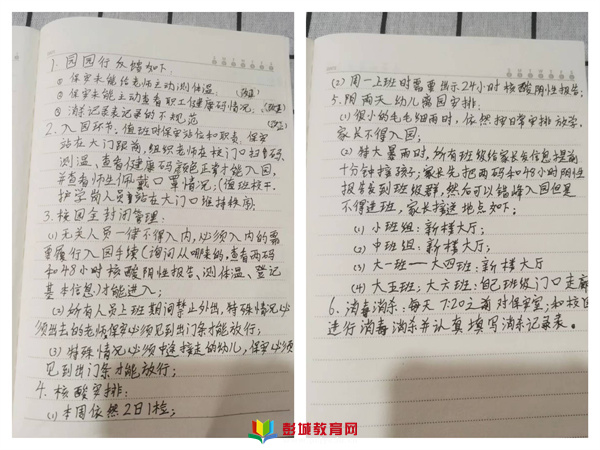 1. 园园行反馈如下:
① 保安未能给老师主动测体温.
② 保安未能主动查看职工健康码情况;
③ 消杀记录表记录的不规范
2. 入园环节、值班时保安站位和职责: 保安
站在大门跟前,组织老师在校门口扫码、
测温、查看健康码颜色正常才能入园,
并查看师生佩戴口罩情况;(值班校干、
护学岗人员站在大门口维持秩序.
3. 校园全封闭管理:
(1) 无关人员一律不得入内,必须入内的需
要履行入园手续(询问从哪来的、查看两码
和48小时核酸阴性报告、测体温、登记
基本信息)才能进入;
(2) 所有人员上班期间禁止外出,特殊情况必
须出去的老师,保安必须见到出门条才能放行;
(3) 特殊情况必须中途接走的幼儿,保安必须
见到出门条才能放行;
4. 核酸安排:
(1) 本周依然2日1检;
(2) 周一上班时需要出示24小时核酸阴性报告;
5. 阴雨天幼儿离园安排:
(1) 很小的毛毛细雨时,依然按日常安排放学,
家长不得入园;
(2) 特大暴雨时,所有班级给家长发信息提前
十分钟接孩子;家长先把两码和48小时阴性
报告发到班级群,然后可以错峰入园但是
不得进班,家长接送地点如下;
(1) 小班组:新楼大厅;
(2) 中班组:新楼大厅;
(3) 大一班——大四班:新楼大厅
(4) 大五班;大六班:自己班级门口走廊
6. 消毒消杀:每天7:20之前对保安室;和校园
进行消毒消杀并认真填写消杀记录表。
彭城教育网